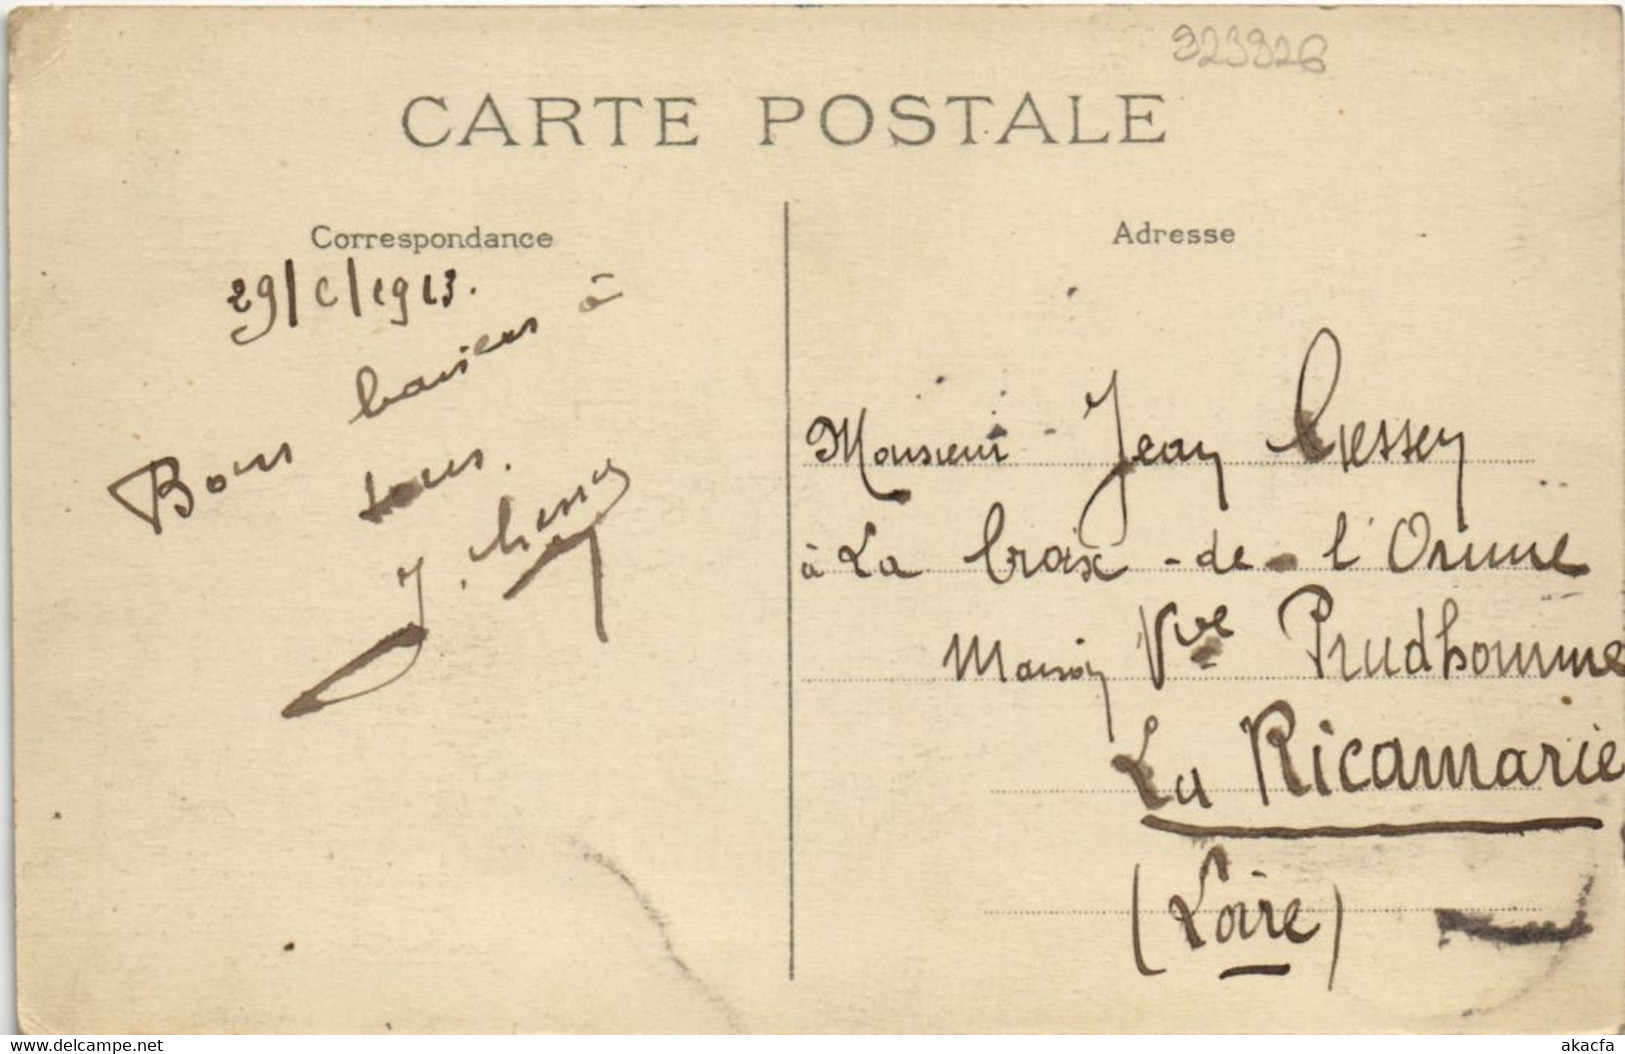 323326
CARTE POSTALE
Correspondance
29/6/1913.
Bons baisers à
tous.
J.
Adresse
Monsieur Jean Cressey
à La Croix-de-l'Orme
Maison Vve Prudhomme
La Ricamarie
(Loire)
www.delcampe.net
akacfa